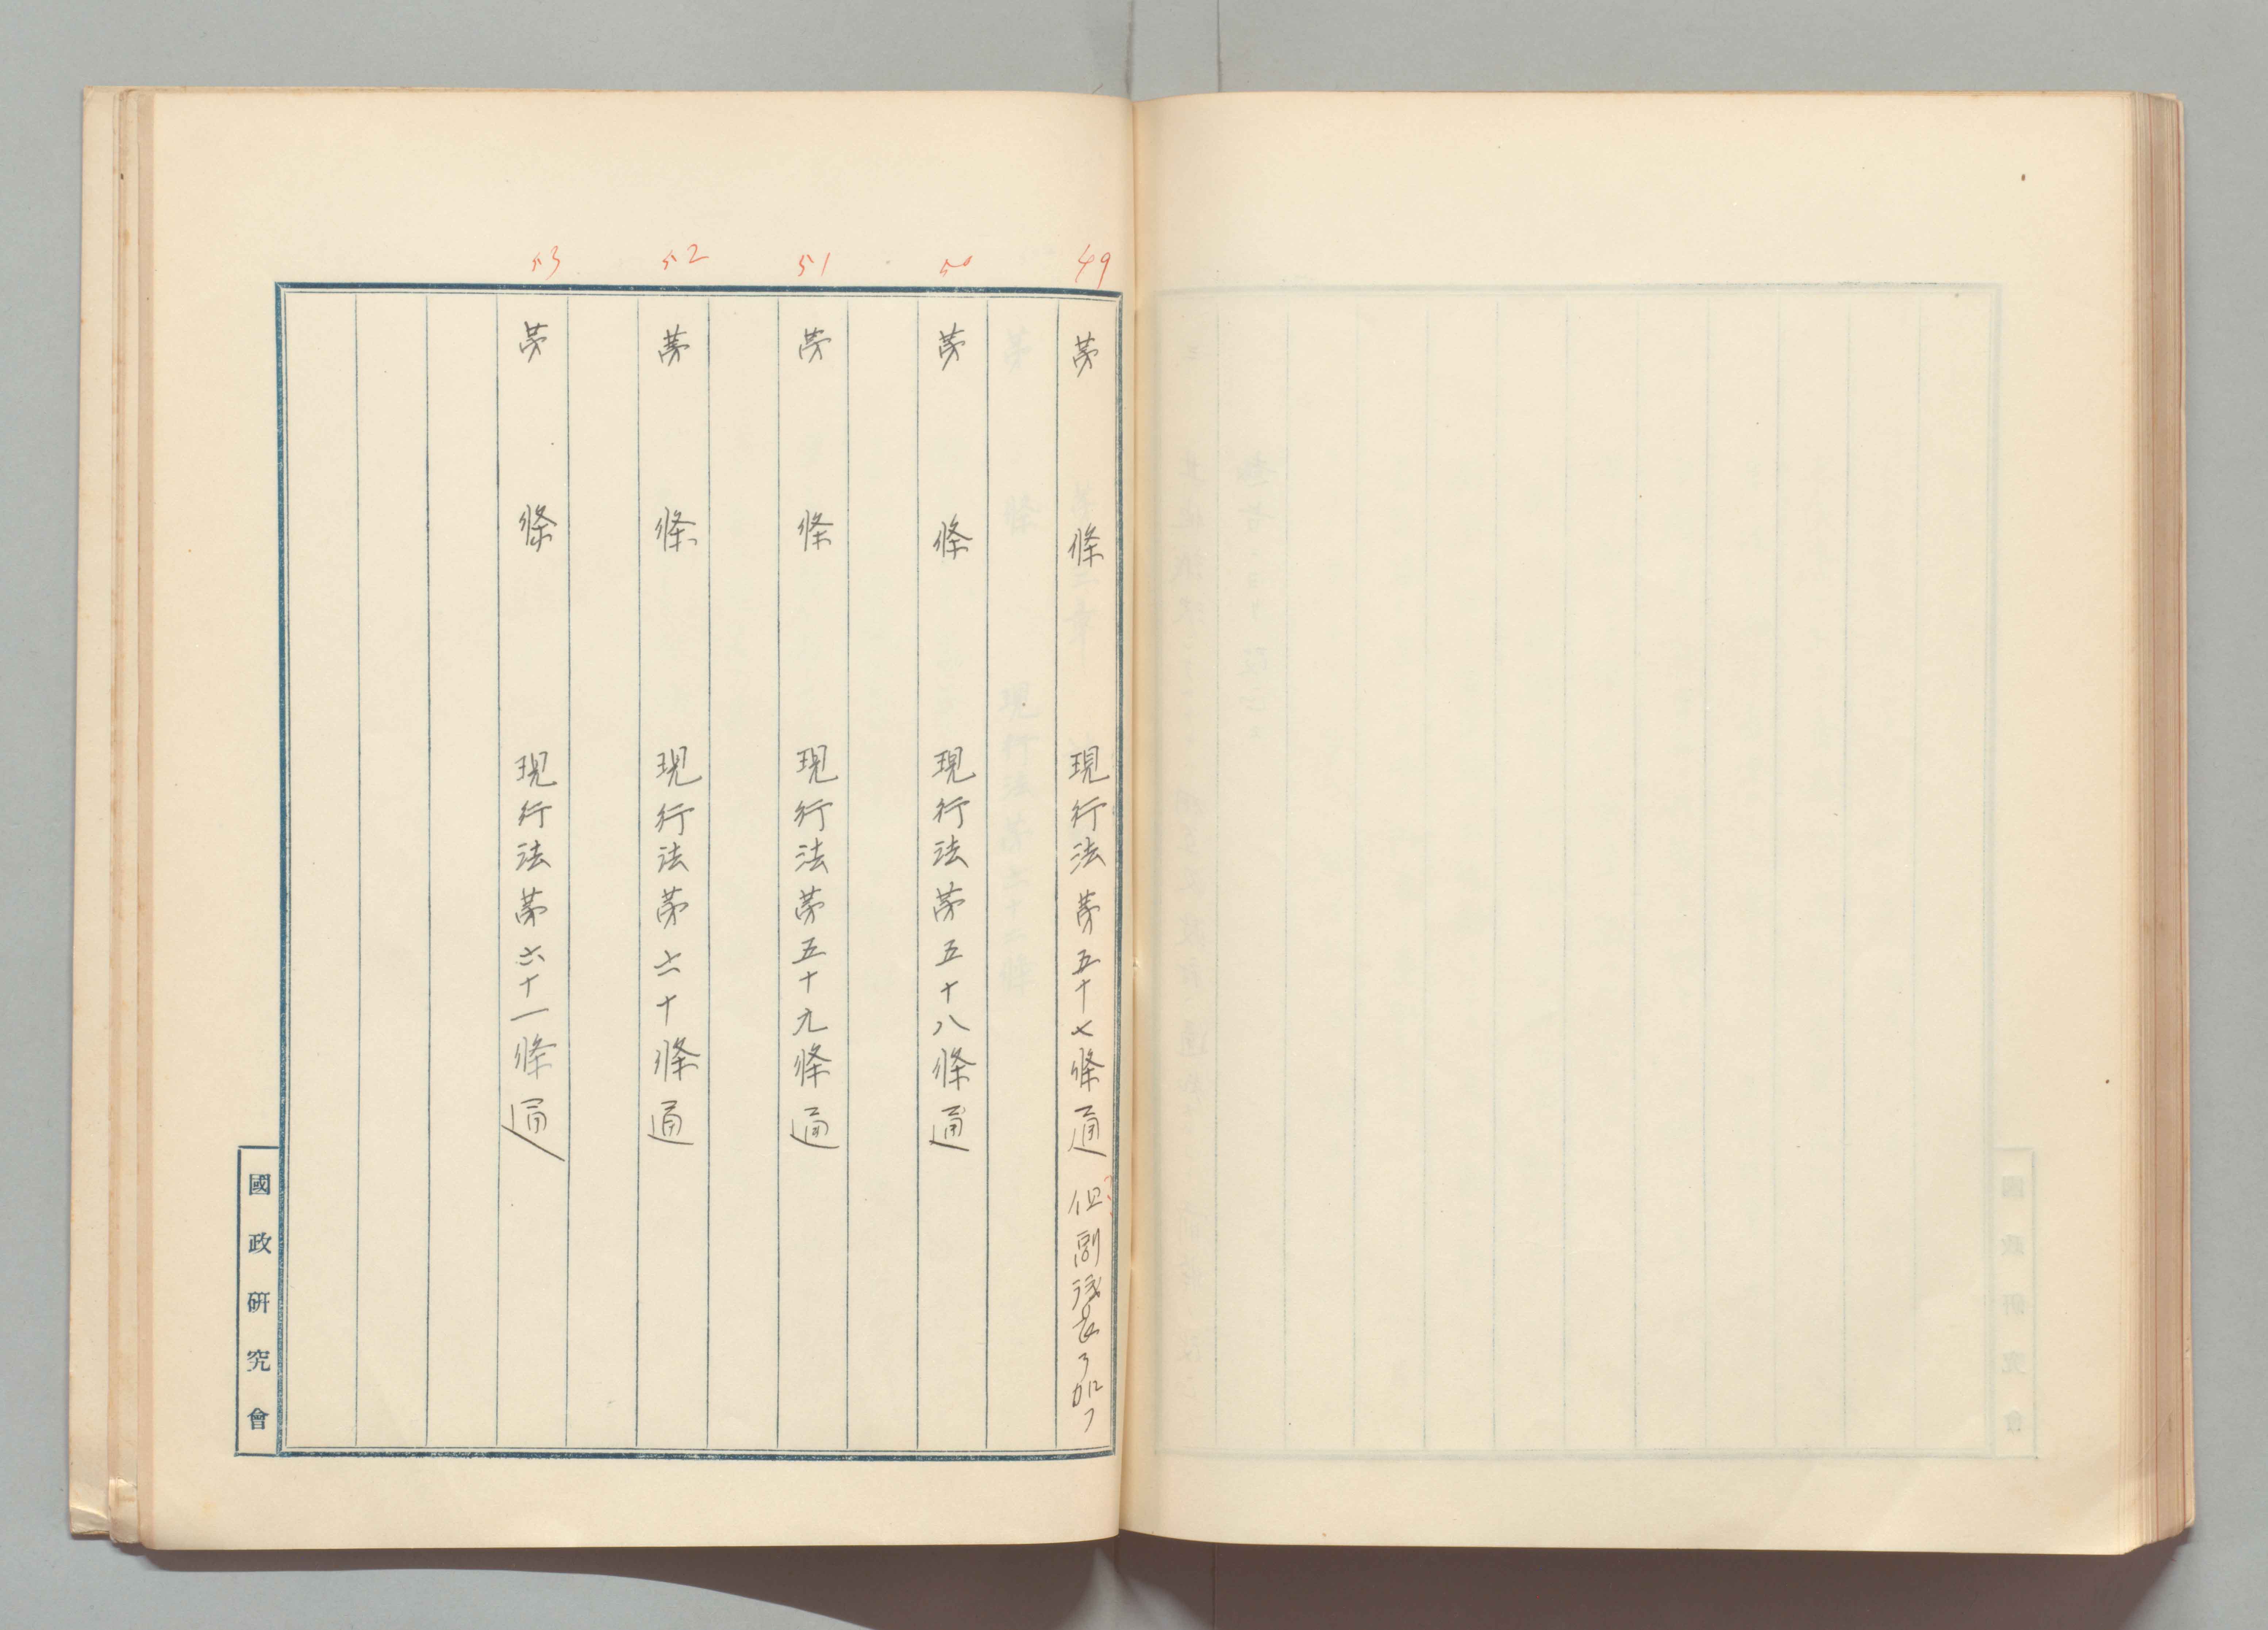 49
第　條　現行法第五十七條通　但副議長ヲ加フ
50
第　條　現行法第五十八條通
51
第　條　現行法第五十九條通
52
第　條　現行法第六十條通
53
第　條　現行法第六十一條通
國政研究會